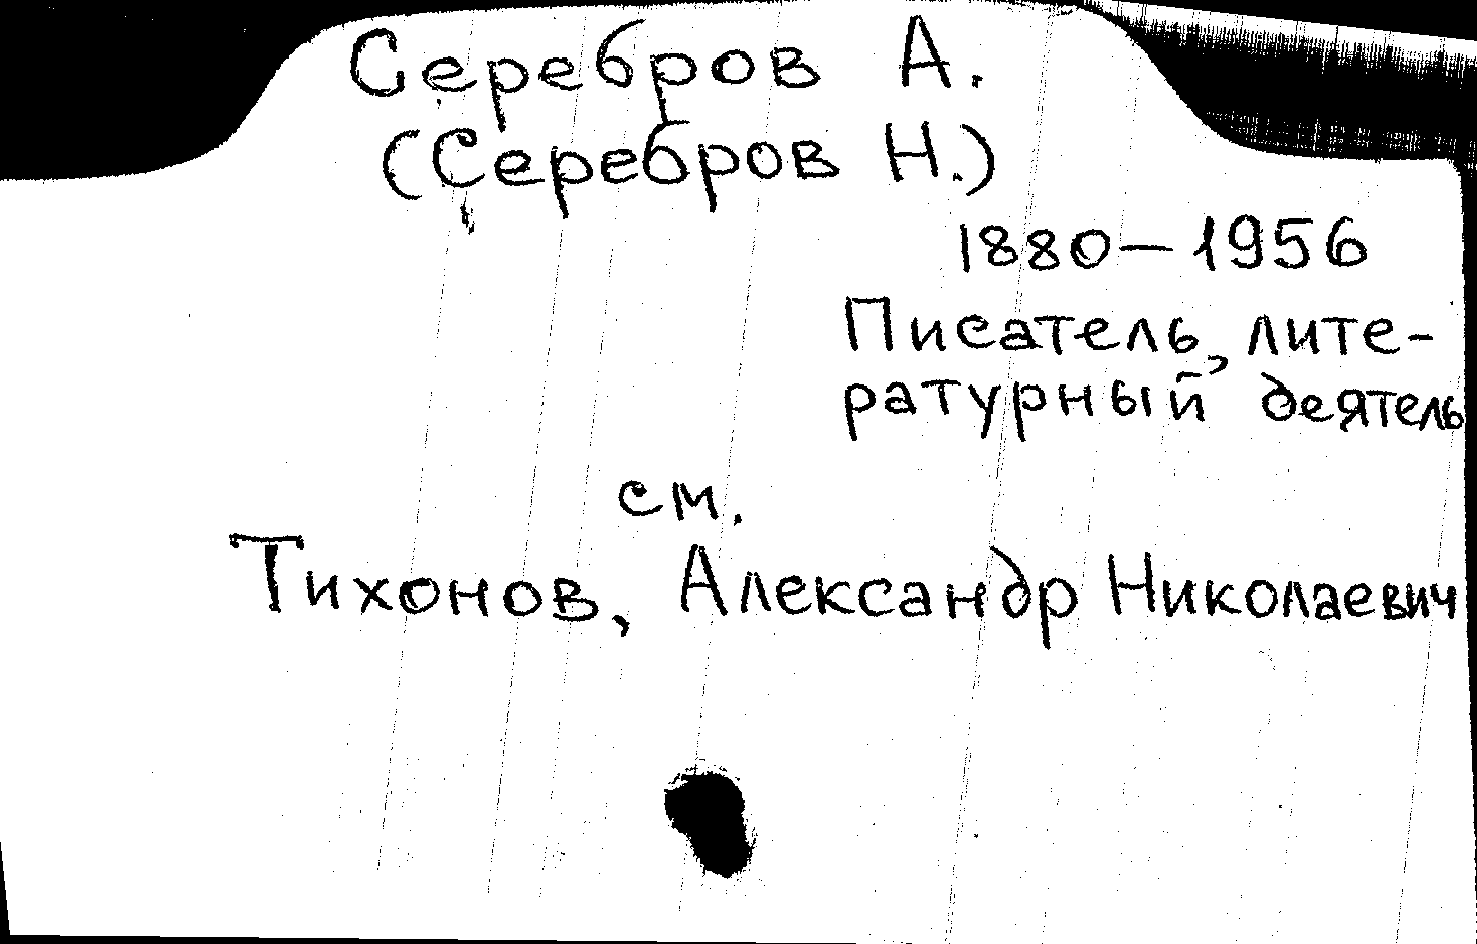 Серебров А.
(Серебров Н.)
1880–1956
Писатель, лите-
ратурный деятель
см.
Тихонов, Александр Николаевич